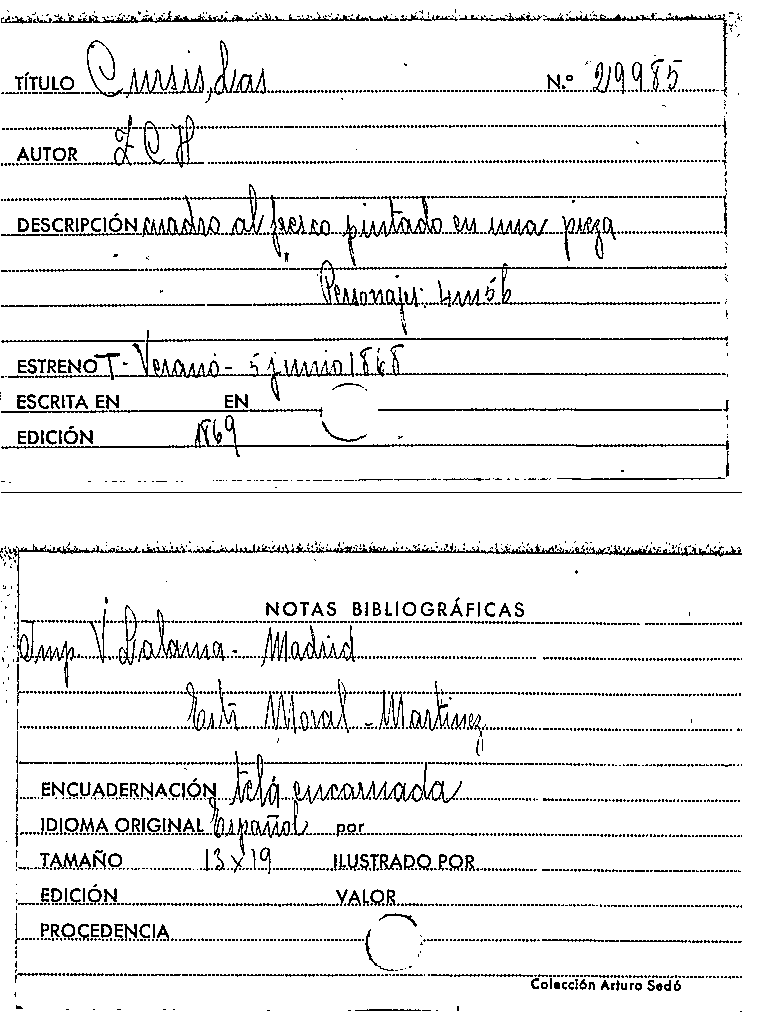 TÍTULO Cursis, Las N.º 29985
AUTOR Z C H
DESCRIPCIÓN cuadro al fresco pintado en una pieza
Personajes: 4m5h
ESTRENO T- Verano - 5 junio 1868
ESCRITA EN EN
EDICIÓN 1869
NOTAS BIBLIOGRÁFICAS
Imp. V. Lalama - Madrid
Estr Moral - Martinez
ENCUADERNACIÓN tela encarnada
IDIOMA ORIGINAL Español por
TAMAÑO 13 x 19 ILUSTRADO POR
EDICIÓN VALOR
PROCEDENCIA
Colección Arturo Sedó